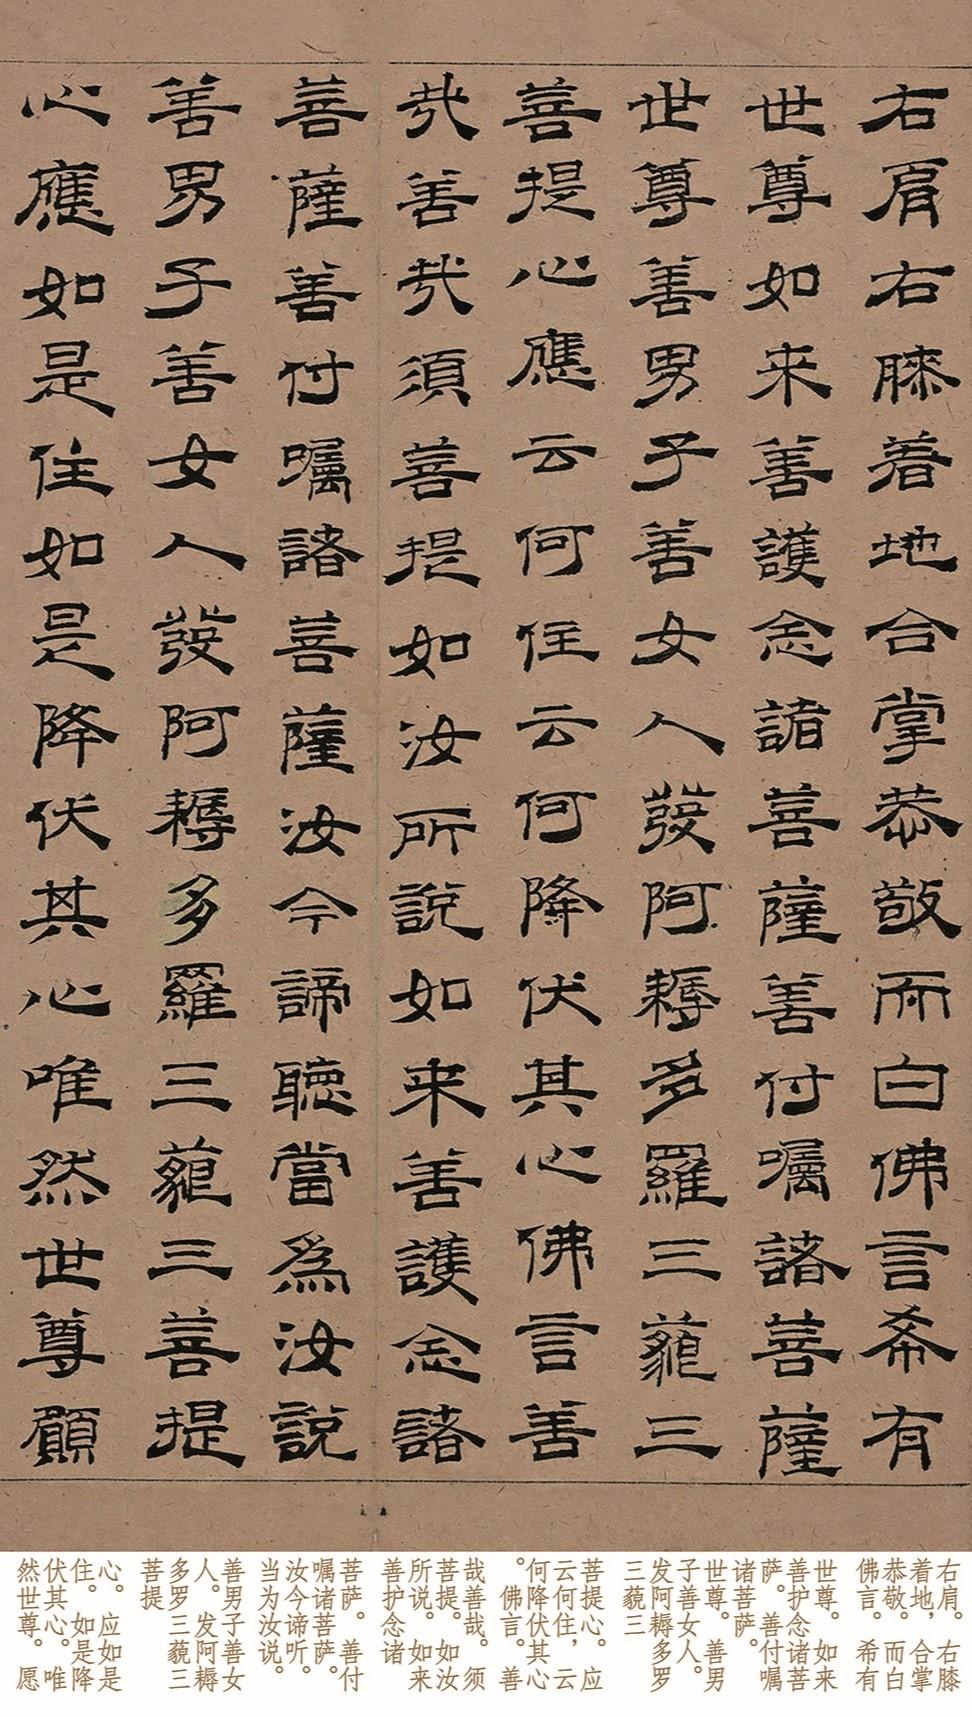 右肩右膝着地合掌恭敬而白佛言希有
世尊如来善護念諸菩薩善付嘱諸菩薩
世尊善男子善女人發阿耨多羅三藐三
菩提心應云何住云何降伏其心佛言善
哉善哉須菩提如汝所說如来善護念諸
菩薩善付嘱諸菩薩汝今諦聽當為汝說
善男子善女人發阿耨多羅三藐三菩提
心應如是住如是降伏其心唯然世尊願
右肩。右膝
着地，合掌
恭敬。而白
佛言。希有
世尊。如来
善护念诸菩
萨。善付嘱
诸菩萨。
世尊。善男
子善女人。
发阿耨多罗
三藐三
菩提心。应
云何住，云
何降伏其心
。佛言。善
哉善哉。须
菩提。如汝
所说。如来
善护念诸
菩萨。善付
嘱诸菩萨。
汝今谛听。
当为汝说。
善男子善女
人。发阿耨
多罗三藐三
菩提
心。应如是
住。如是降
伏其心。唯
然世尊。愿